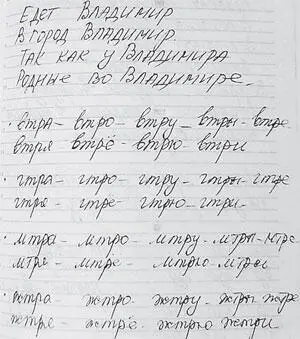 ЕДЕТ ВЛАДИМИР
В ГОРОД ВЛАДИМИР
ТАК КАК У ВЛАДИМИРА
РОДНЫЕ ВО ВЛАДИМИРЕ.
· втра - втро - втру - втры - втре
втря втрё - втрю - втри
· гтра - гтро - гтру - гтры - гтре
гтря - гтре - гтрю - гтри
· мтра - мтро - мтру - мтры - мтрэ
мтря - мтре - мтрю мтри
· жтра - жтро - жтру - жтры жтре
жтря - жтрё - жтрю жтри